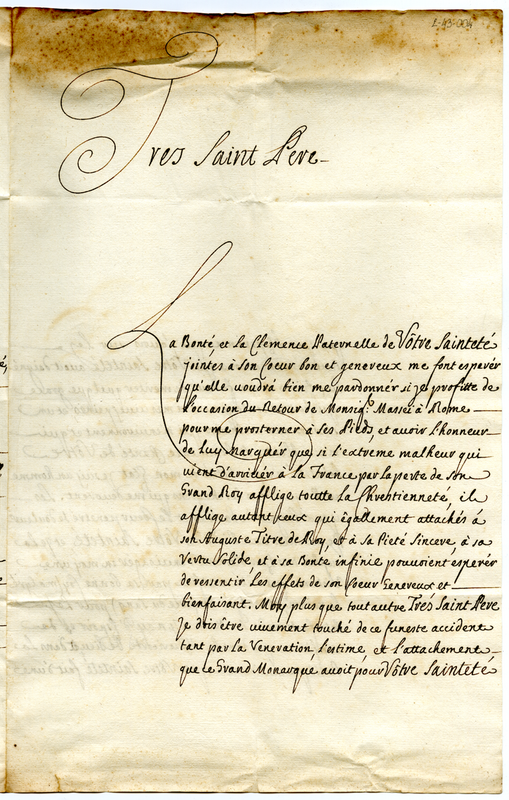 L-43-004
Tres Saint Pere
La Bonté et la Clemence Paternelle de Vôtre Sainteté
jointes à son Coeur bon et genereux me font esperér
qu'elle voudrà bien me pardonnér si je profitte de
l'occasion du Retour de Monsigr. Massei à Rome
pour me prosterner à ses Pieds, et avoir l'honneur
de Luy marquér que si l'extreme malheur qui
vient d'arrivér à la France par la perte de son
Grand Roy afflige toutte la Chrêtienneté, il
afflige autant ceux qui êgallement attachés á
son Auguste Titre de Roy, et à sa Pieté Sincere, à sa
Vertu Solide, et à sa Bonté infinie pouvoient esperér
de ressentir les effets de son Coeur Genereux et
bienfaisant. Moy plus que tout autre Trés Saint Pere
je dois être vivement touché de ce funeste accident
tant par la Veneration, l'estime, et l'attachement
que le Grand Monarque avoit pour Vôtre Sainteté